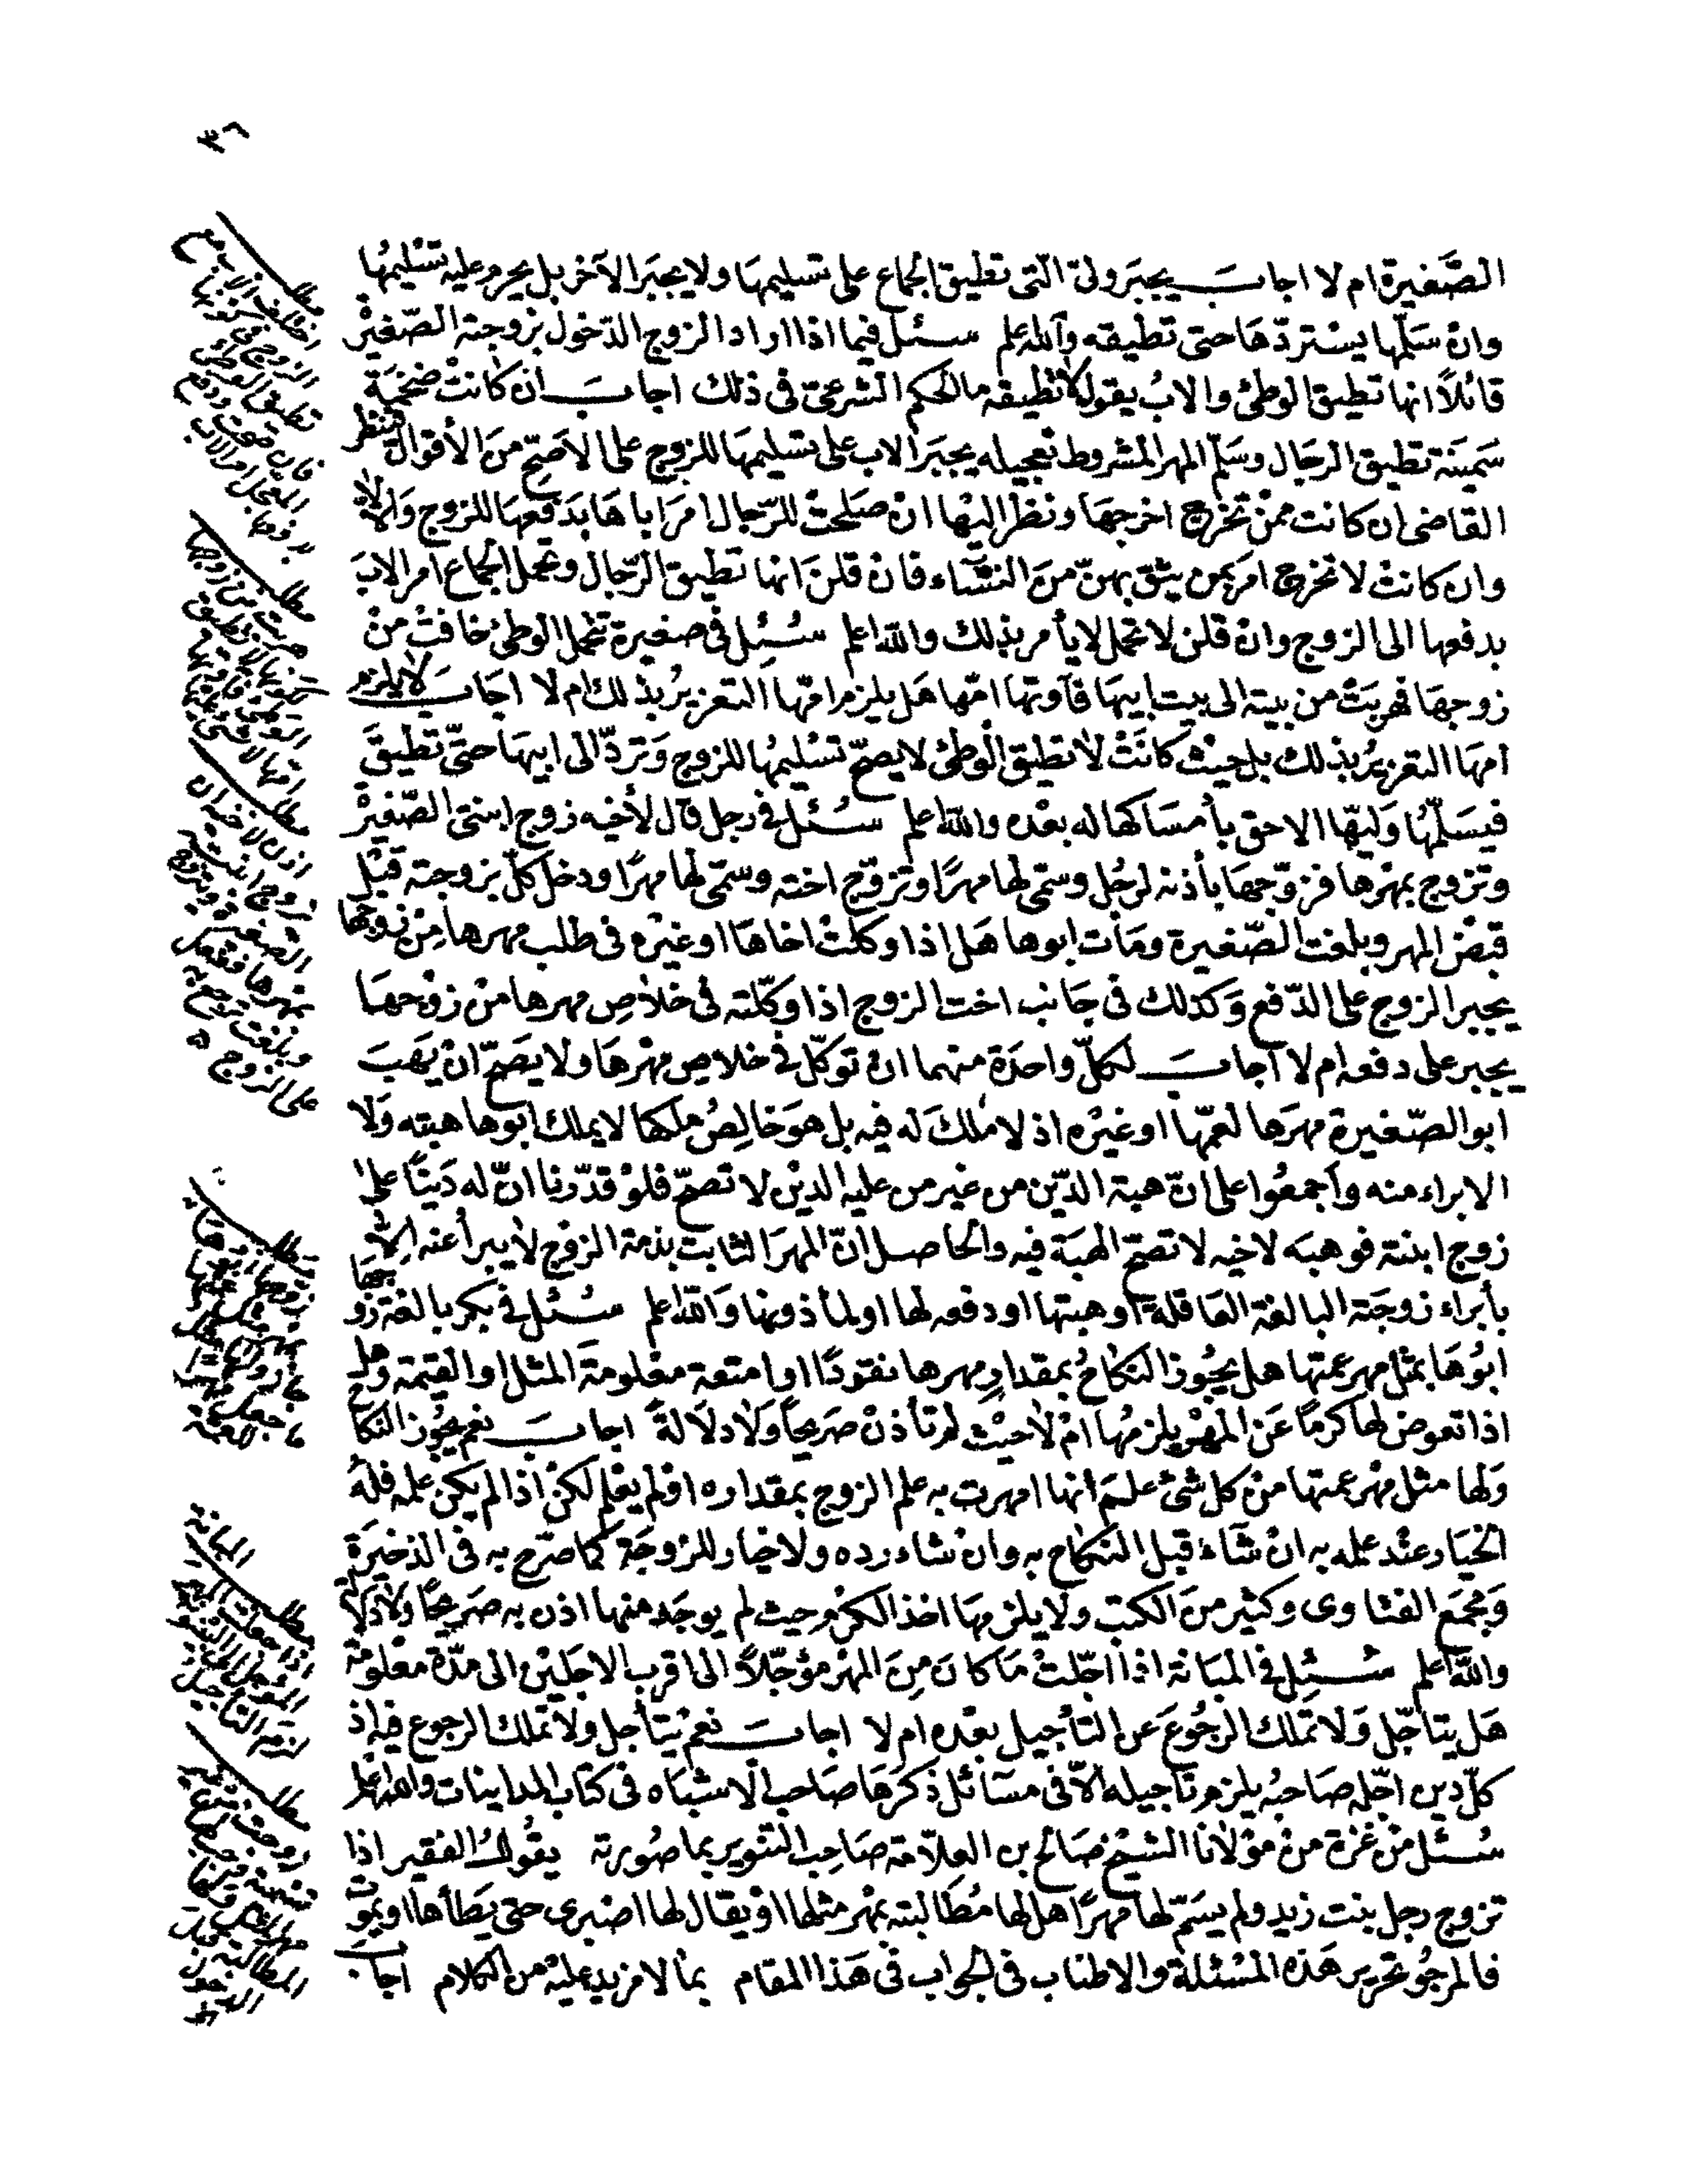 ٣٨
الصَّغيرة ام لا اجاب يجبَر ولىّ التى تطيق الجماع على تسليمهَا ولا يجبَر الآخر بل يحرم عليه تسْليمُها
وان سَلّمها يسْتردّهَا حتى تطيقه والله اعلم سئل فيما اذا اراد الزوج الدّخول بزوجته الصّغيرْة
قائلاً انها تطيق الوطئ والابُ يقول لا تطيقه ما الحكم الشرعىّ فى ذلك اجابَ ان كانتْ ضخمَة
سَمينَة تطيق الرجَال وسَلّم المهر المشروط تعجيله يجبَر الاب على تسليمهَا للزوج على الاَصَحّ منَ الأقوال فينظر
القاضى ان كانت ممنْ تخرج اخرجهَا ونظر اليْها انْ صَلحتْ للرّجال امرَ اباهَا بدَفعهَا للزوج وَالا فلا
وان كانتْ لا تخرج امر بمن يثق بهنّ منَ النسَّاء فان قلنَ انها تطيق الرّجال وتحمل الجماع امر الابَ
بدفعها الى الزوج وانْ قلن لا تحمل لا يأمر بذلك والله اعلم سُئِل فى صغيرة تتحمل الوطئ خافتْ منْ
زوجهَا فهربَتْ من بيته الى بيت ابيهَا فآوتها امّها هَل يلزم امّها التعزيرُ بذلك ام لا اجَابَ لا يلزم
امهَا التعزيرُ بذلك بل حيْث كانَتْ لا تطيق الْوطئ لا يصحّ تسْليمُها للزوج وَتردّ الى ابيهَا حتّى تطيقَ
فيسَلّمُهَا وَليّها الاحق بأمسَاكها له بعْده والله اعلم سُئل فى رجل قال لأخيه زوج ابنتى الصّغيرْة
وتزوج بمهْرها فزوّجهَا بأذنه لرجُل وسمّى لها مهرًا وتزوّج اخته وسمّى لها مهرًا ودخل كلّ بزوجته قبْل
قبْض المهر وبلغت الصّغيرة ومَات ابوها هَل اذا وكلتْ اخاهَا اوغيْره فى طلب مهرها مِنْ زوجها
يجبر الزوج على الدّفع وَكذلك فى جَانب اخت الزوج اذا وكّلته فى خلاصِ مهرها منْ زوْجهَا
يجبر على دفعه ام لا اجابَ لكلّ واحدَة منهما انْ توكّل فى خلاصِ مهْرهَا ولا يصَحّ انْ يَهَبَ
ابو الصّغيرة مهرَها لعمّها اوغيْره اذ لا ملكَ له فيه بل هوَ خالِصُ ملكها لا يملك ابوها هبته وَلا
الابراء منه واَجمعُوا على انّ هبة الدّين من غيرمن عليه الديْن لا تصحّ فلوْ قدّرنا انّ له دَيْنًا على
زوج ابنته فوهبَه لاخيه لا تصحّ الهبَة فيه والحاصل انّ المهرَ الثابت بذمة الزوْج لا يبرأ عنه اِلاّ
بأبراء زوجَته البالغة العَاقلة اوهبتها او دفعه لها او لمأذونها وَالله اعلم سُئل فى بكر بالغة زوجهَا
ابُوهَا بمثل مهر عمتها هل يجُوز النكاحُ بمقدار مهرها نقودًا او امتعة معْلومةَ المثل او القيمة وَهل
اذا تعوض لها كرمًا عَن المَهْر يلزمُها امْ لا حيْث لم تأذنْ صَريحاً وَلا دلاَلةً اجابَ نعم يجُوز النكاح
وَلها مثل مهْر عمتها منْ كل شئ علمَ انها امهرت به علم الزوج بمقداره اوْلم يعْلم لكنْ اذا لم يكن علمه فلهُ
الخيَار عنْد علمه به انْ شَاءَ قبل النكاح به وانْ شاء رده ولا خيار للزوجَة كما صَرّح به فى الذخيرَة
وَمجمَع الفتاوى وكثير منَ الكتب ولا يلزمهَا اخذ الكرْم حيث لم يوجَد منها اذن به صَريحًا وَلا دَلالة
والله اعلم سُئِل فى المبَانة اذا اجّلتْ مَا كانَ مِنَ المهْر مؤجّلاً الى اقرب الاجَليْن الى مدّة معْلومَة
هَل يتأجّل وَلا تملك الرجُوعَ عن التأجيل بعْده ام لا اجابَ نعم يتأجل ولا تملك الرجوع فيه اذ
كلّ دين اجّله صَاحبُه يلزم تأجيله الاّ فى مسَائل ذكرهَا صَاحب الاشبَاه فى كتاب المداينات والله اعلم
سُئل منْ غزة منْ موْلانا الشيْخ صَالح بن العلاّمة صَاحِب التنْوير بما صُورته يقُولُ الفقير اذا
تزوج رجل بنت زيد ولم يسَمّ لها مهرًا هل لها مُطَالبته بمهْر مثلها اوْ يقال لها اصْبرى حتى يَطأها او يموت
فالمرجُو تحرير هَذه المسْئلة والاطناب فى الجواب فى هَذا المقام بما لا مزيد عليْه من الكلام اجاب